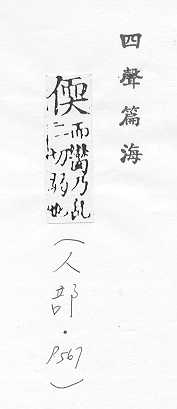 四聲篇海
偄
而臠乃乱
二切弱也
（人部．P567）